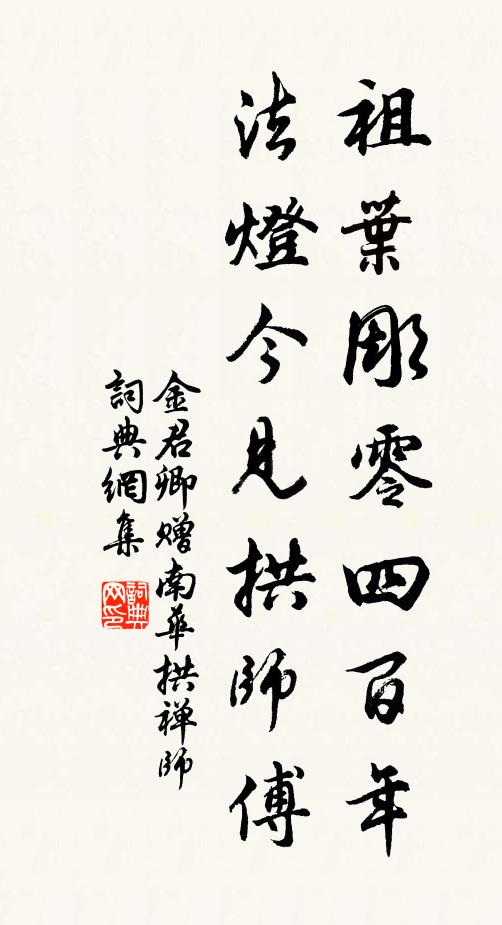 祖葉彫零四百年
法燈今見拱師傅
金君卿贈南華拱禅師
詞典網集
詞典网印